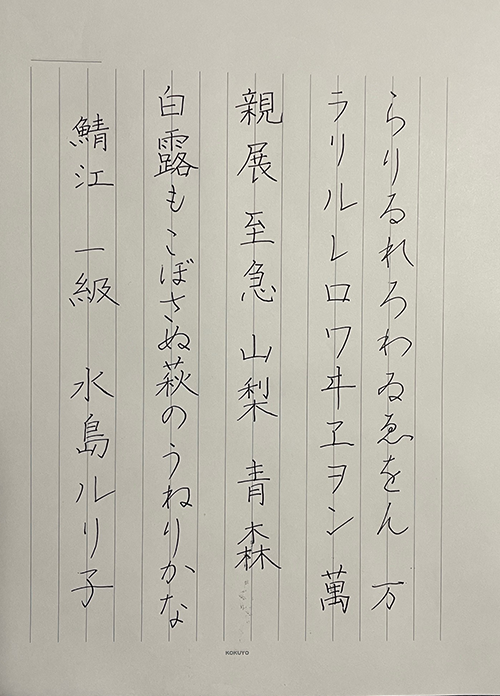 らりるれろわゐゑをん 万
ラリルレロワヰヱヲン 萬
親展 至急 山梨 青森
白露もこぼさぬ萩のうねりかな
鯖江 一級 水島ルリ子
KOKUYO